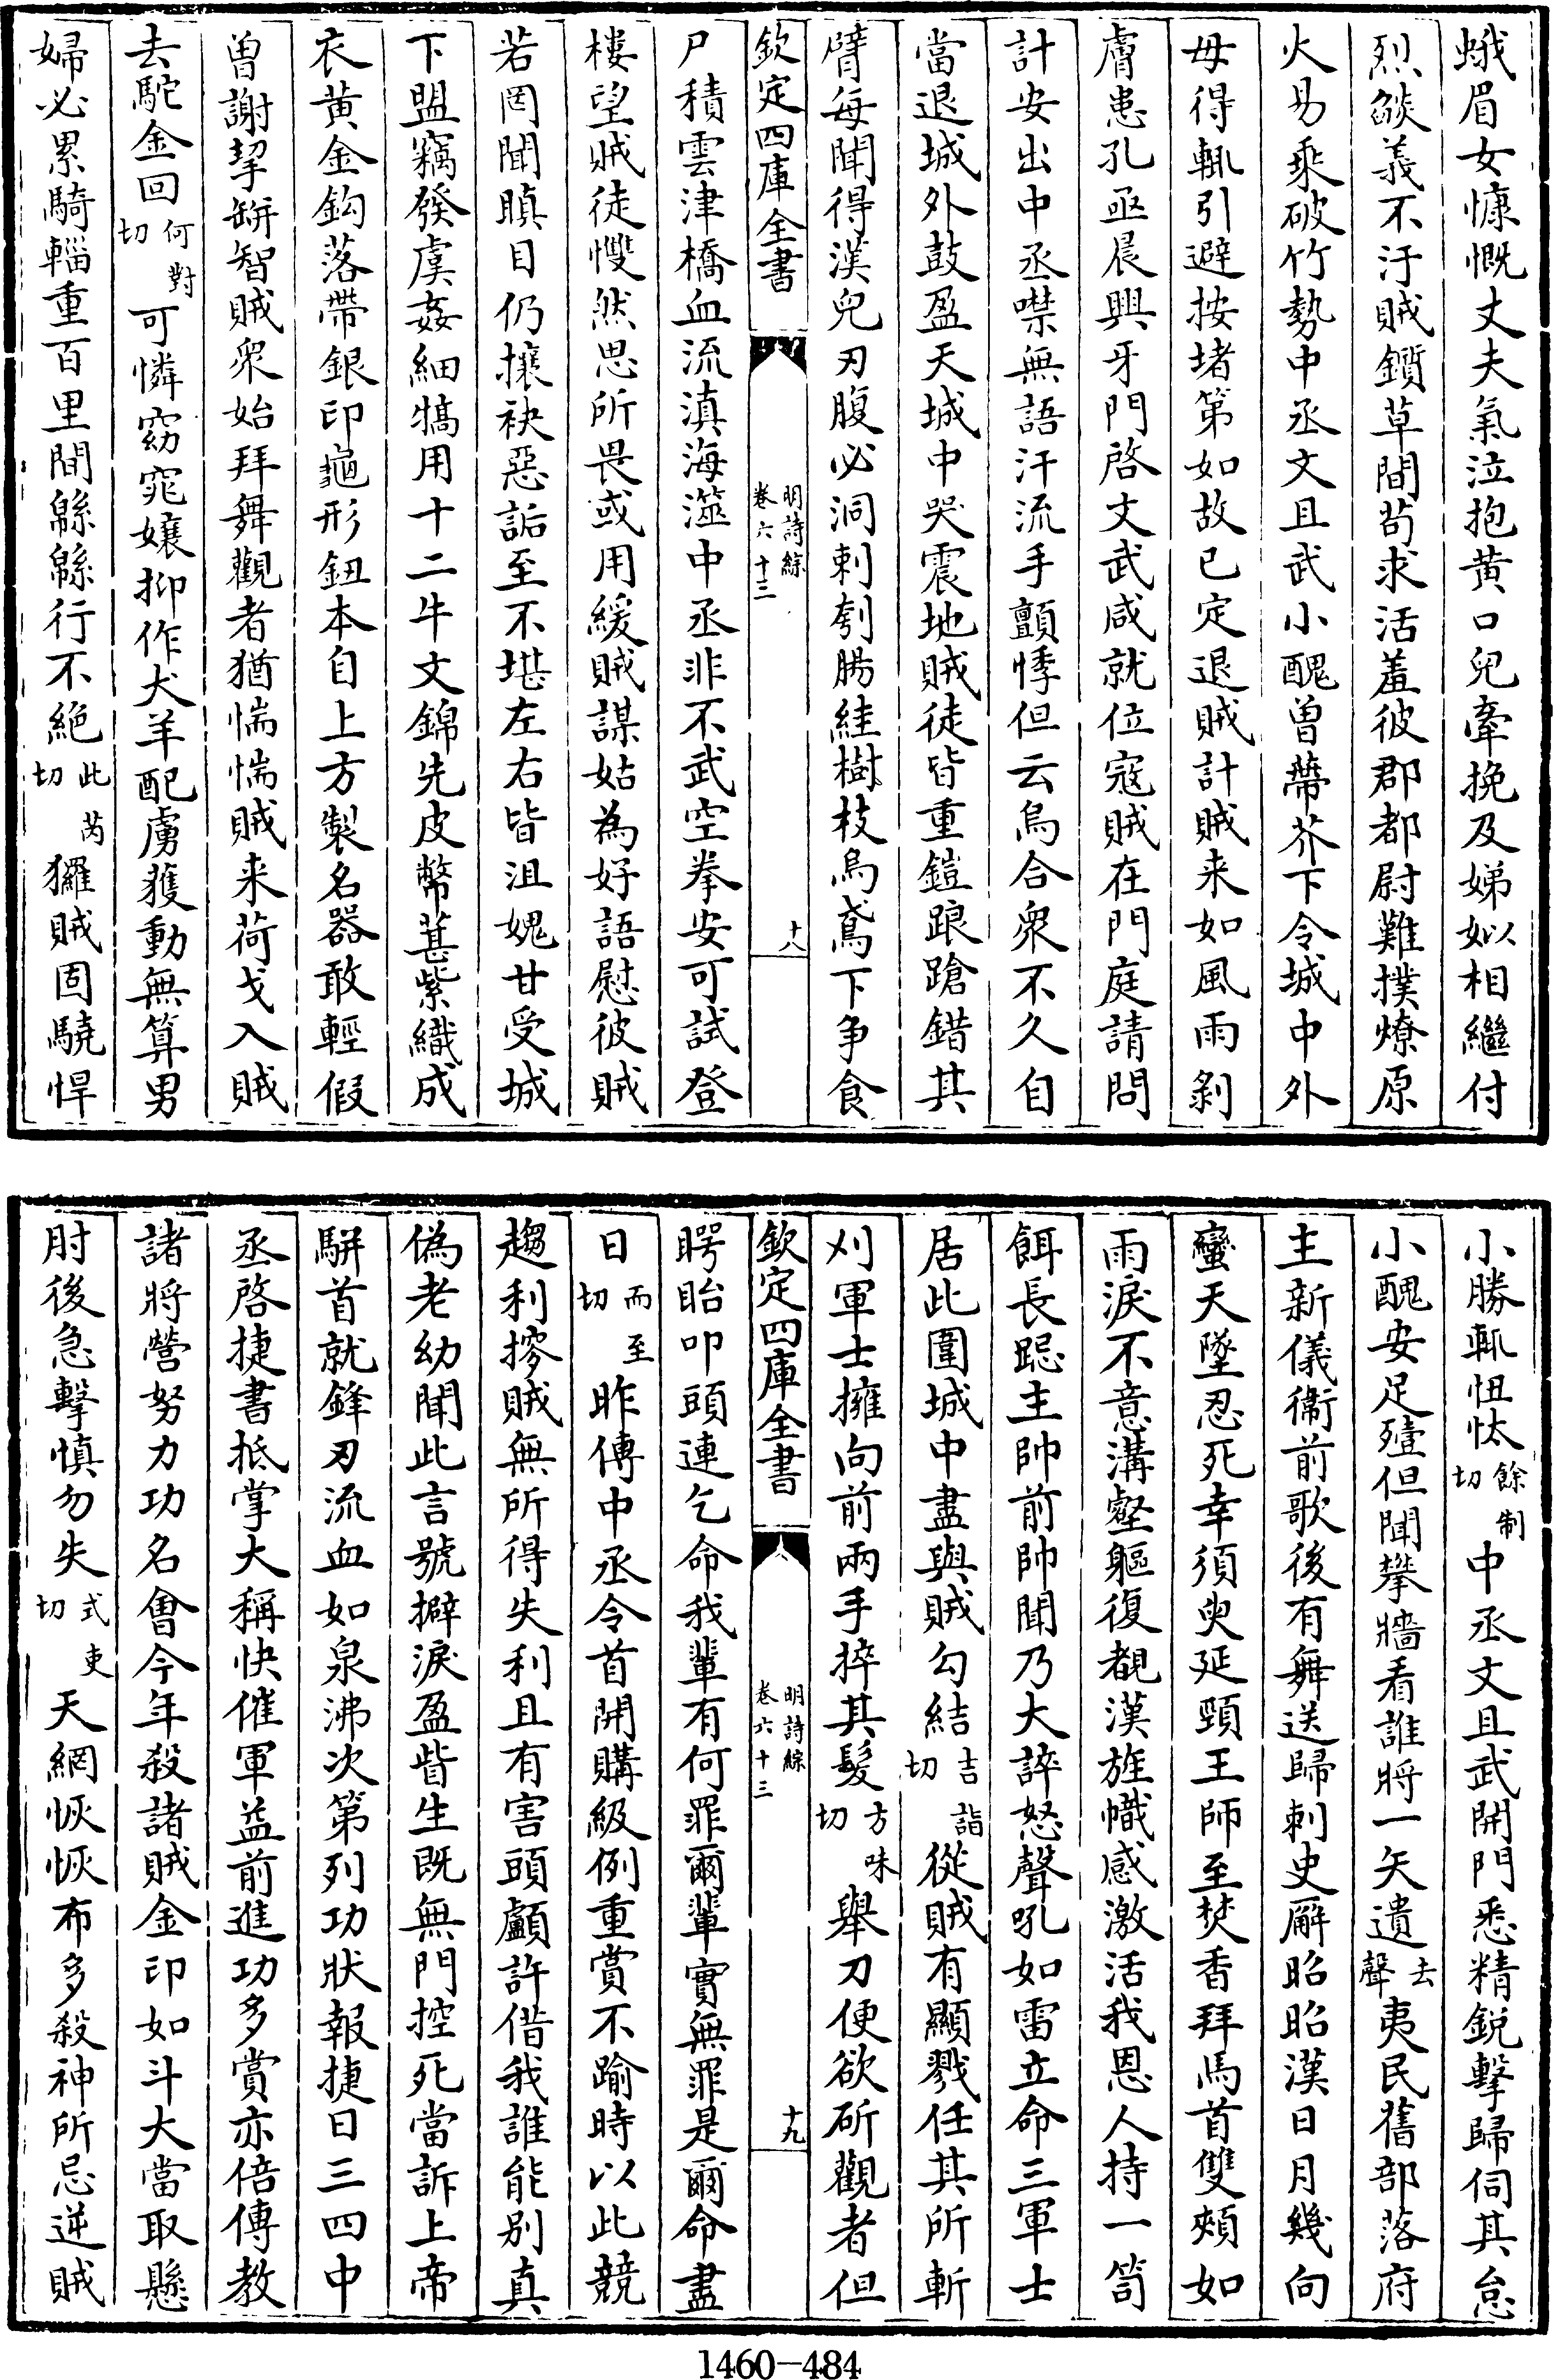 蛾眉女慷慨丈夫氣泣抱黄口兒牽挽及娣姒相繼付
烈燄義不汙賊鑕草間苟求活羞彼郡都尉難撲燎原
火易乘破竹勢中丞文且武小醜曽蔕芥下令城中外
毋得輒引避按堵第如故已定退賊計賊来如風雨剝
膚患孔亟晨興牙門啓文武咸就位寇賊在門庭請問
計安出中丞噤無語汗流手顫悸但云烏合衆不久自
當退城外鼓盈天城中哭震地賊徒皆重鎧踉蹌錯其
臂每聞得漢兒刃腹必洞刺刳腸絓樹枝烏鳶下争食
欽定四庫全書 明詩綜 卷六十三 十八
尸積雲津橋血流滇海澨中丞非不武空拳安可試登
樓望賊徒戄然思所畏或用緩賊謀姑為好語慰彼賊
若罔聞瞋目仍攘袂惡詬至不堪左右皆沮媿甘受城
下盟竊發虞姦細犒用十二牛文錦先皮幣葚紫織成
衣黄金鈎落帶銀印龜形鈕本自上方製名器敢輕假
曽謝挈缾智賊衆始拜舞觀者猶惴惴賊来荷戈入賊
去駝金回何對切可憐窈窕孃抑作犬羊配虜獲動無算男
婦必累騎輜重百里間緜緜行不絶此芮切玀賊固驍悍
小勝輒忸忕餘制切中丞文且武開門悉精鋭擊歸伺其怠
小醜安足殪但聞攀牆看誰將一矢遺去聲夷民舊部落府
主新儀衞前歌後有舞送歸刺史廨昭昭漢日月幾向
蠻天墜忍死幸須臾延頸王師至焚香拜馬首雙頰如
雨淚不意溝壑軀復覩漢旌幟感激活我恩人持一笥
餌長跽主帥前帥聞乃大誶怒聲吼如雷立命三軍士
居此圍城中盡與賊勾結吉詣切從賊有顯戮任其所斬
刈軍士擁向前兩手捽其髮方味切舉刀便欲斫觀者但
欽定四庫全書 明詩綜 卷六十三 十九
睜眙叩頭連乞命我輩有何罪爾輩實無罪是爾命盡
日而至切昨傳中丞令首開購級例重賞不踰時以此競
趨利摉賊無所得失利且有害頭顱許借我誰能别真
偽老幼聞此言號擗淚盈眥生既無門控死當訴上帝
駢首就鋒刃流血如泉沸次第列功狀報捷日三四中
丞啓捷書抵掌大稱快催軍益前進功多賞亦倍傳教
諸將營努力功名會今年殺諸賊金印如斗大當取懸
肘後急擊慎勿失式吏切天網恢恢布多殺神所忌逆賊
1460-484